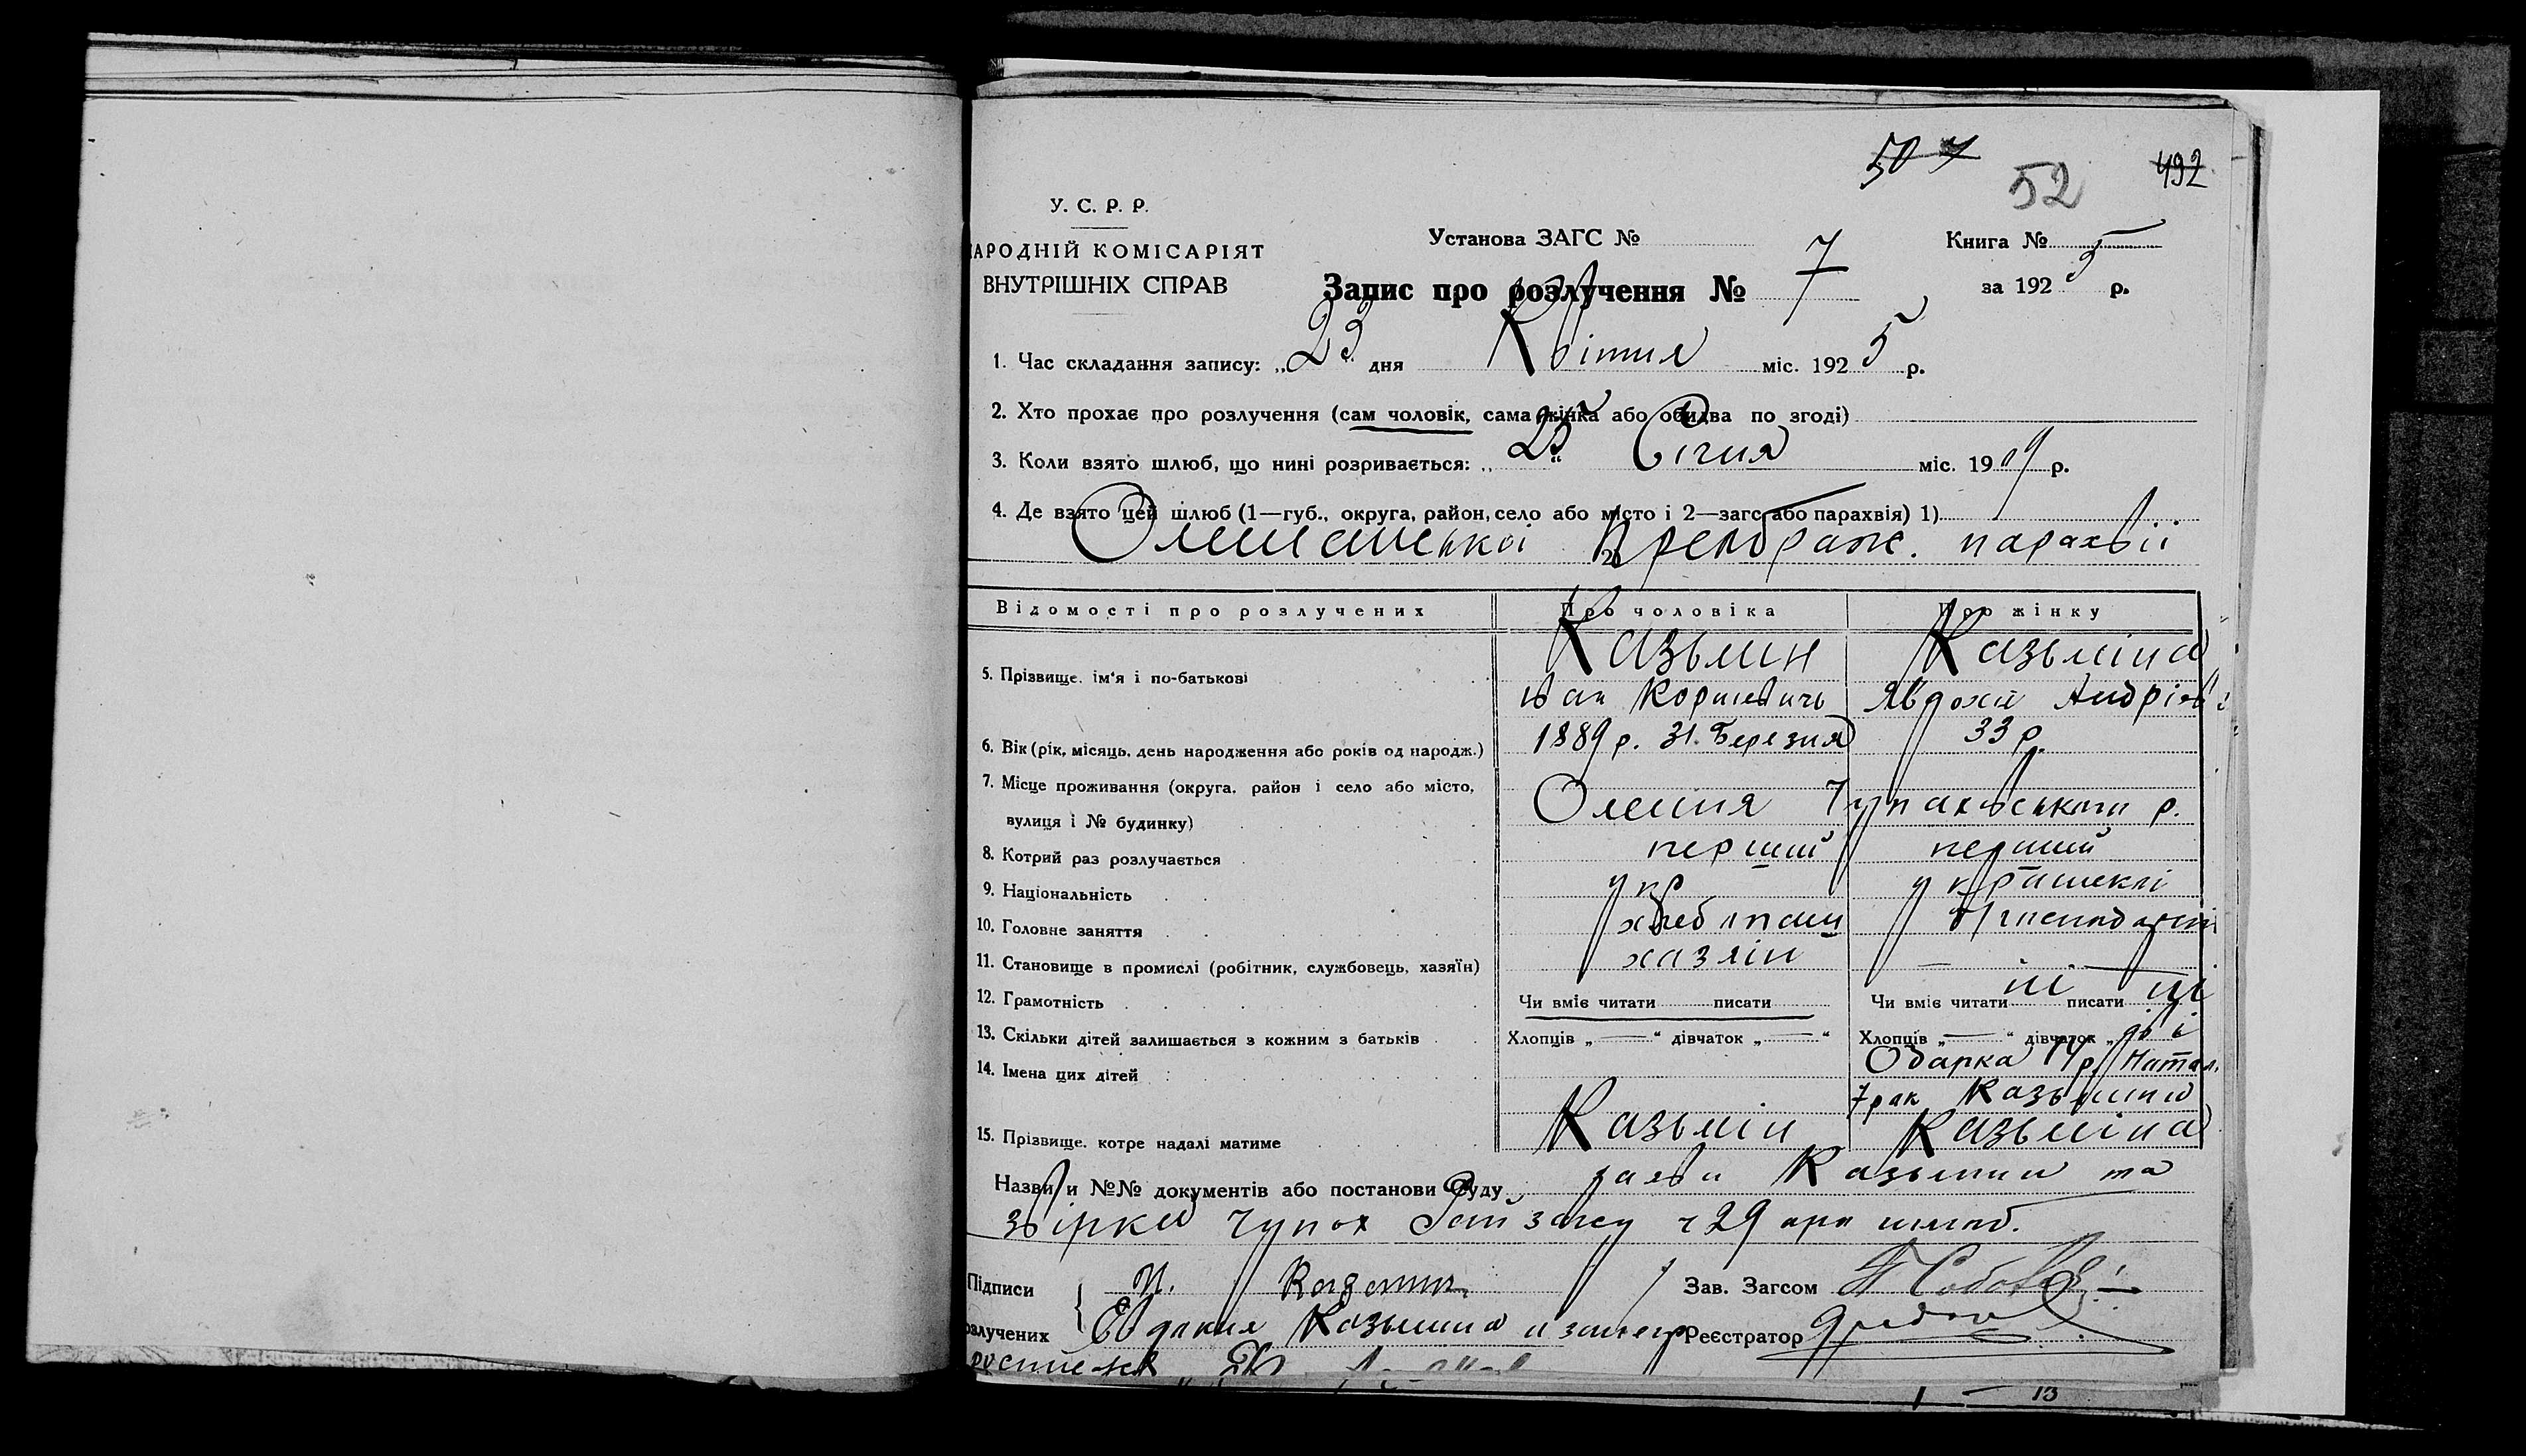 50 7
52
492
У. С. Р. Р.
АРОДНІЙ КОМІСАРІЯТ
ВНУТРІШНІХ СПРАВ
Установа ЗАГС №
Книга № 5
Запис про розлучення № 7
за 192 5 р.
1. Час складання запису: „ 23 " дня Квітня міс. 192 5 р.
2. Хто прохає про розлучення (сам чоловік, сама жінка або обидва по згоді)
3. Коли взято шлюб, що нині розривається: „ 25 " Січня міс. 19 09 р.
4. Де взято цей шлюб (1—губ., округа, район, село або місто і 2—загс або парахвія) 1)
2) Преображ. парахвії
Відомості про розлучених Про чоловіка Про жінку
5. Прізвище, ім'я і по-батькові Казьмин Казьміна
Іван Явдохія Андріїв
6. Вік (рік, місяць, день народження або років од народж.) 1889 р. 31 Березня 33 р.
7. Місце проживання (округа, район і село або місто,
вулиця і № будинку) Олешня Чупахівського р.
8. Котрий раз розлучається перший перший
9. Національність укр українкі
10. Головне заняття хлебопаш
11. Становище в промислі (робітник, службовець, хазяїн) хазяін —
12. Грамотність Чи вміє читати писати Чи вміє читати ні писати ні
13. Скільки дітей залишається з кожним з батьків Хлопців „ — " дівчаток „ — " Хлопців „ — " дівчаток „
14. Імена цих дітей Одарка 14 р. Натал.
7 рок Казьмини
15. Прізвище, котре надалі матиме Казьмін Казьміна
Назви и №№ документів або постанови Суду заява Казьмина та
звірка Чупах Рай загсу ч 29 про шлюб.
Підписи И. Казьмин Зав. Загсом
озлучених Евдокия Казьмина Реєстратор
13